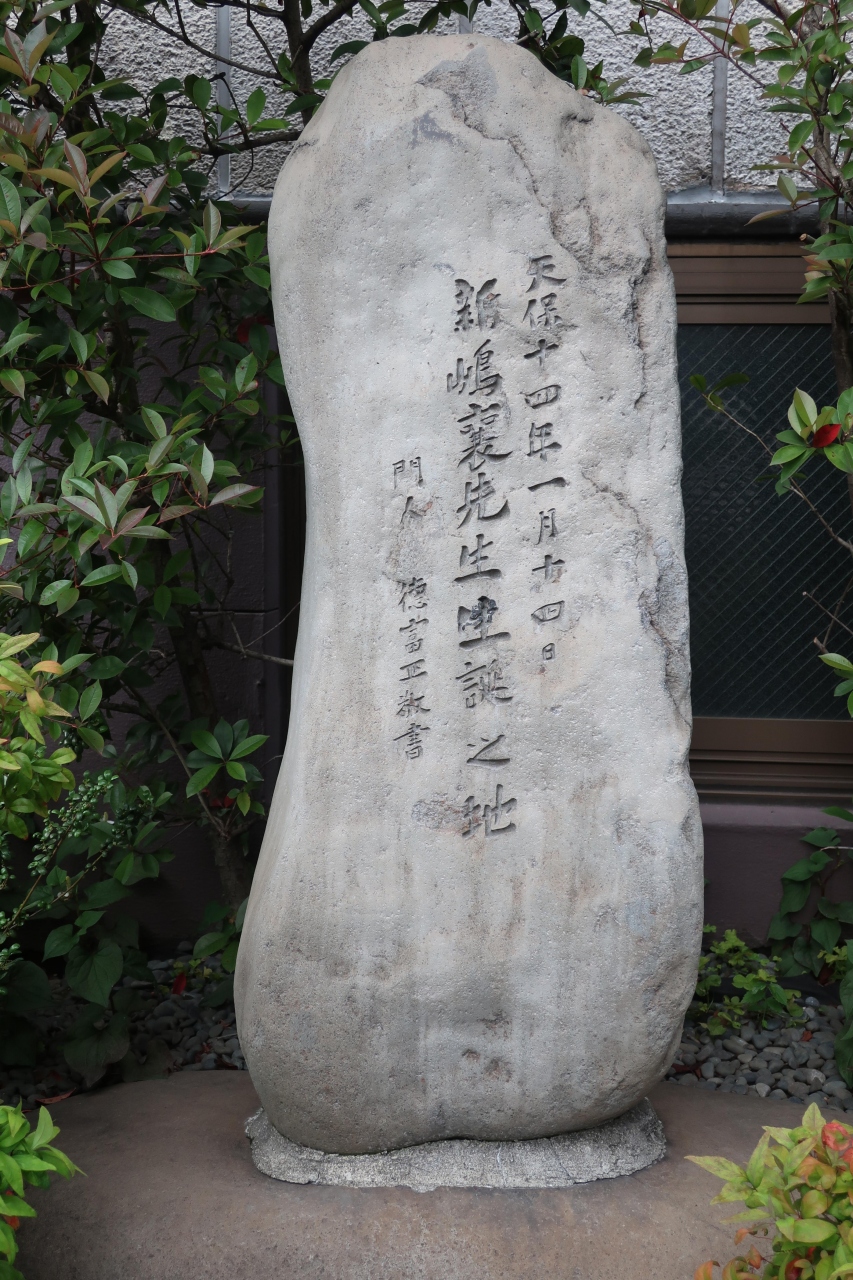 天保十四年一月十四日
新嶋襄先生生誕之地
門人 徳富正敬書